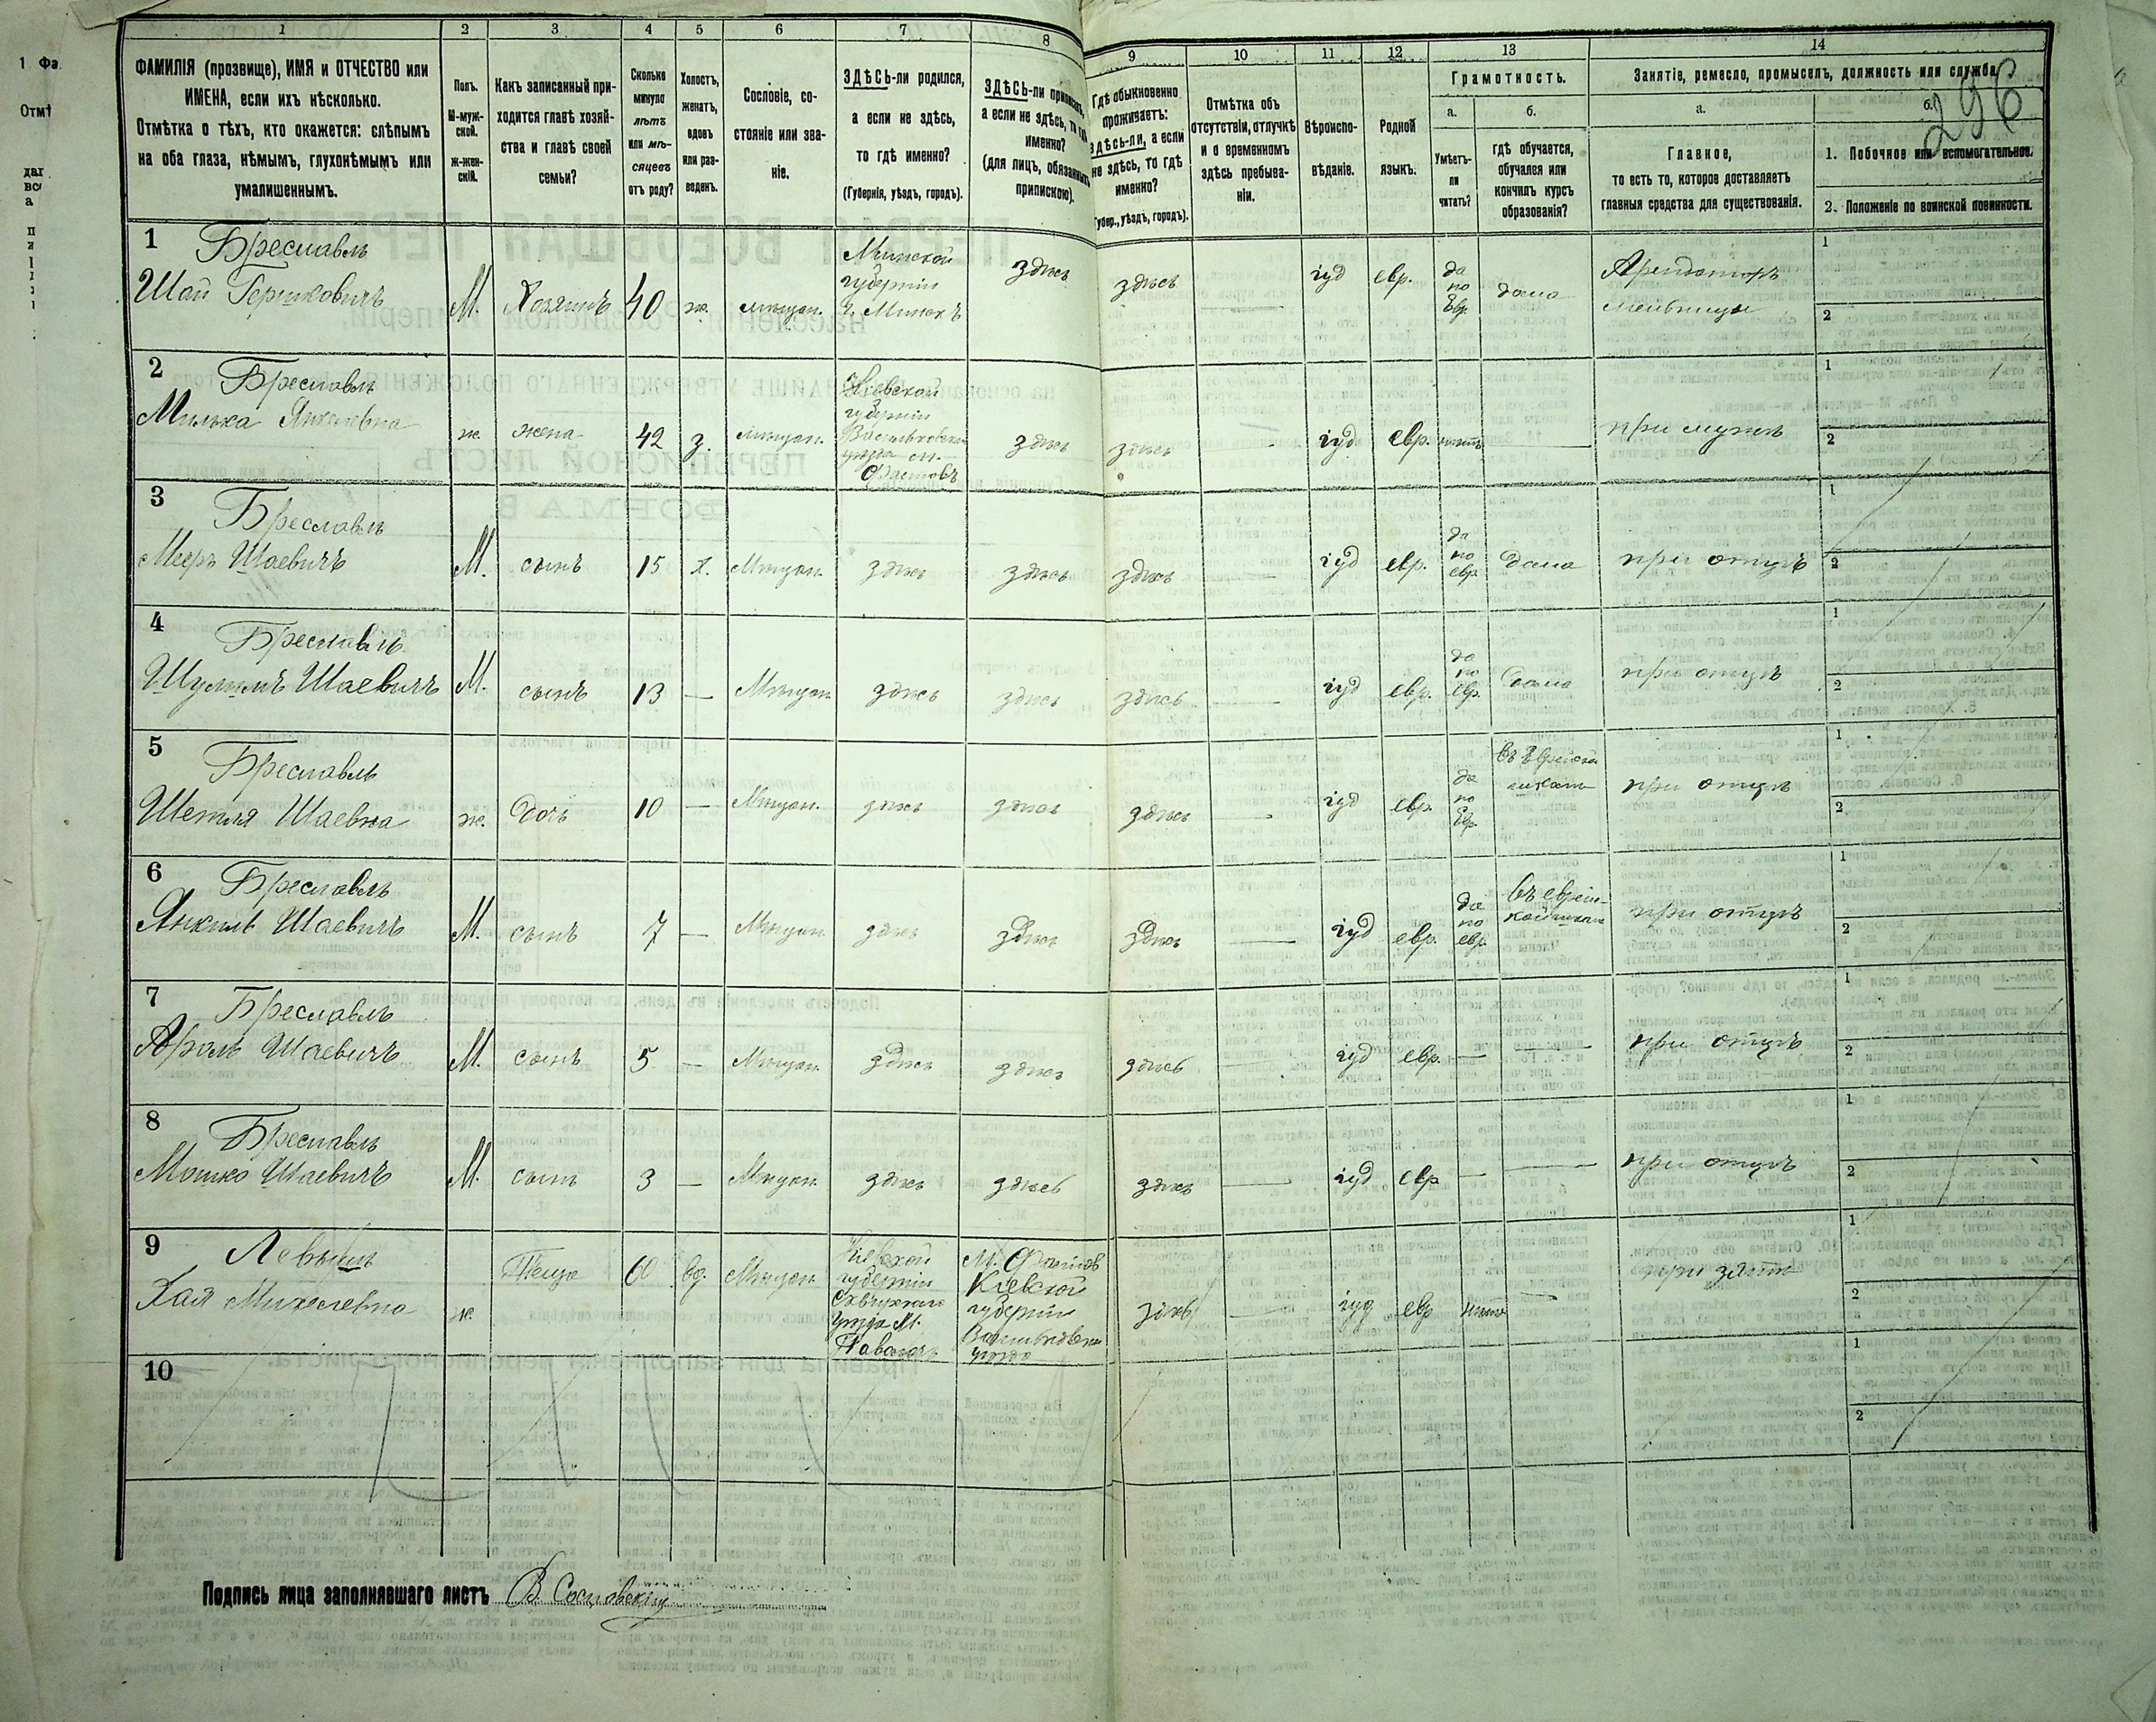 1 2 3 4 5 6 7 8 9 10 11 12 13 14
ФАМИЛІЯ (прозвище), ИМЯ и ОТЧЕСТВО или
ИМЕНА, если ихъ нѣсколько.
Отмѣтка о тѣхъ, кто окажется: слѣпымъ
на оба глаза, нѣмымъ, глухонѣмымъ или
умалишеннымъ.
Полъ.
М-муж-
ской.
ж-жен-
скій.
Какъ записанный при-
ходится главѣ хозяй-
ства и главѣ своей
семьи?
Сколько
минуло
лѣтъ
или мѣ-
сяцевъ
отъ роду?
Холостъ,
женатъ,
вдовъ
или раз-
веденъ.
Сословіе, со-
стояніе или зва-
ніе.
ЗДѢСЬ-ли родился,
а если не здѣсь,
то гдѣ именно?
(Губернія, уѣздъ, городъ).
ЗДѢСЬ-ли приписанъ,
а если не здѣсь, то гдѣ
именно?
(для лицъ, обязанныхъ
припискою).
Гдѣ обыкновенно
проживаетъ:
здѣсь-ли, а если
не здѣсь, то гдѣ
именно?
(Губер., уѣздъ, городъ).
Отмѣтка объ
отсутствіи, отлучкѣ
и о временномъ
здѣсь пребыва-
ніи.
Вѣроиспо-
вѣданіе.
Родной
языкъ.
Грамотность.
а.
Умѣетъ-
ли
читать?
б.
гдѣ обучается,
обучался или
кончилъ курсъ
образованія?
Занятіе, ремесло, промыселъ, должность или служба.
а.
Главное,
то есть то, которое доставляетъ
главныя средства для существованія.
б.
1. Побочное или вспомогательное.
2. Положеніе по воинской повинности.
296
1 Бреславль
Шая Гершковичъ М. Хозяинъ 40 ж. мѣщан. Минской
губерніи
г. Минскъ здѣсь здѣсь — іуд евр. да
по
Евр. дома Арендаторъ
мельницы 1
2
2 Бреславль
Милька Янкелевна ж. жена 42 з. мѣщан. Кіевской
губерніи
Васильковскаго
уѣзда м.
Фастовъ здѣсь здѣсь — іуд евр. нѣтъ — при мужѣ 1
2
3 Бреславль
Мееръ Шаевичъ М. сынъ 15 х. Мѣщан. здѣсь здѣсь здѣсь — іуд евр. да
по
евр дома при отцѣ 1
2
4 Бреславль
Шулимъ Шаевичъ М. сынъ 13 — Мѣщан. здѣсь здѣсь здѣсь — іуд евр. да
по
евр. дома при отцѣ 1
2
5 Бреславль
Шаевна ж. дочь 10 — Мѣщан. здѣсь здѣсь здѣсь — іуд евр. да
по
Евр. въ Еврейской
школѣ при отцѣ 1
2
6 Бреславль
Янкель Шаевичъ М. сынъ 7 — Мѣщан. здѣсь здѣсь здѣсь — іуд евр. да
по
евр. въ еврейс-
кой школѣ при отцѣ 1
2
7 Бреславль
Шаевичъ М. сынъ 5 — Мѣщан. здѣсь здѣсь здѣсь — іуд евр. — — при отцѣ 1
2
8 Бреславль
Мошко Шаевичъ М. сынъ 3 — Мѣщан. здѣсь здѣсь здѣсь — іуд евр — — при отцѣ 1
2
9
Хая Михелевна ж. Теща 60 вд. Мѣщан. Кіевской
губерніи
Сквирскаго
уѣзда М.
Паволочь М. Фастов
Кіевской
губерніи
Васильковскаго
уѣзда здѣсь — іуд евр нѣтъ — при зятѣ 1
2
10 1
2
Подпись лица заполнявшаго листъ В. Сосновскій